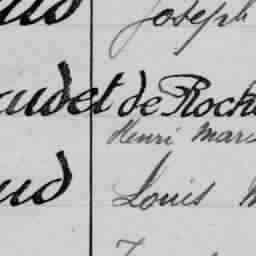 Joseph
audet de Roche
Henri Marc
aud Louis